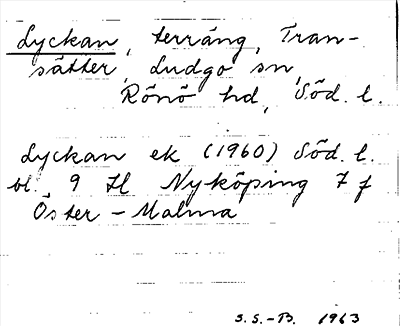 Lyckan, terräng, Tran-
sätter, Ludgo sn,
Rönö hd, Söd. l.
Lyckan ek (1960) Söd. l.
bl. 9 H Nyköping 7 f
Öster-Malma
S.S.-B. 1963